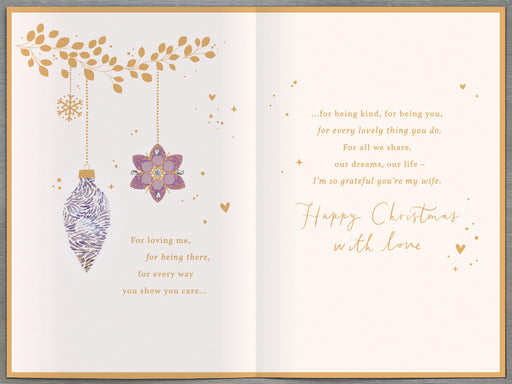 For loving me,
for being there,
for every way
you show you care...
...for being kind, for being you,
for every lovely thing you do.
For all we share,
our dreams, our life –
I'm so grateful you're my wife.
Happy Christmas
with love